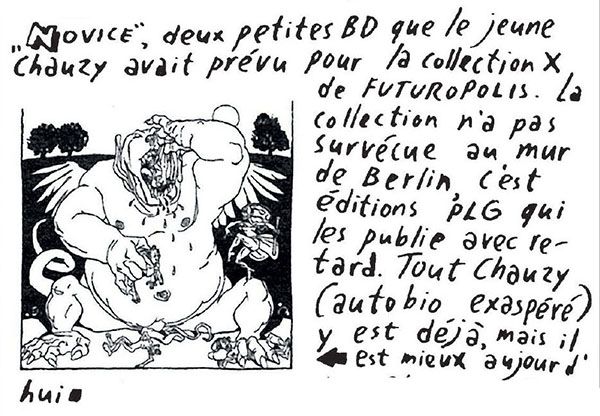 „NOVICE", deux petites BD que le jeune
Chauzy avait prévu pour la collection X
de FUTUROPOLIS. La
collection n'a pas
survécue au mur
de Berlin, c'est
éditions PLG qui
les publie avec re-
tard. Tout Chauzy
(autobio exaspéré)
y est déjà, mais il
est mieux aujourd'
hui.